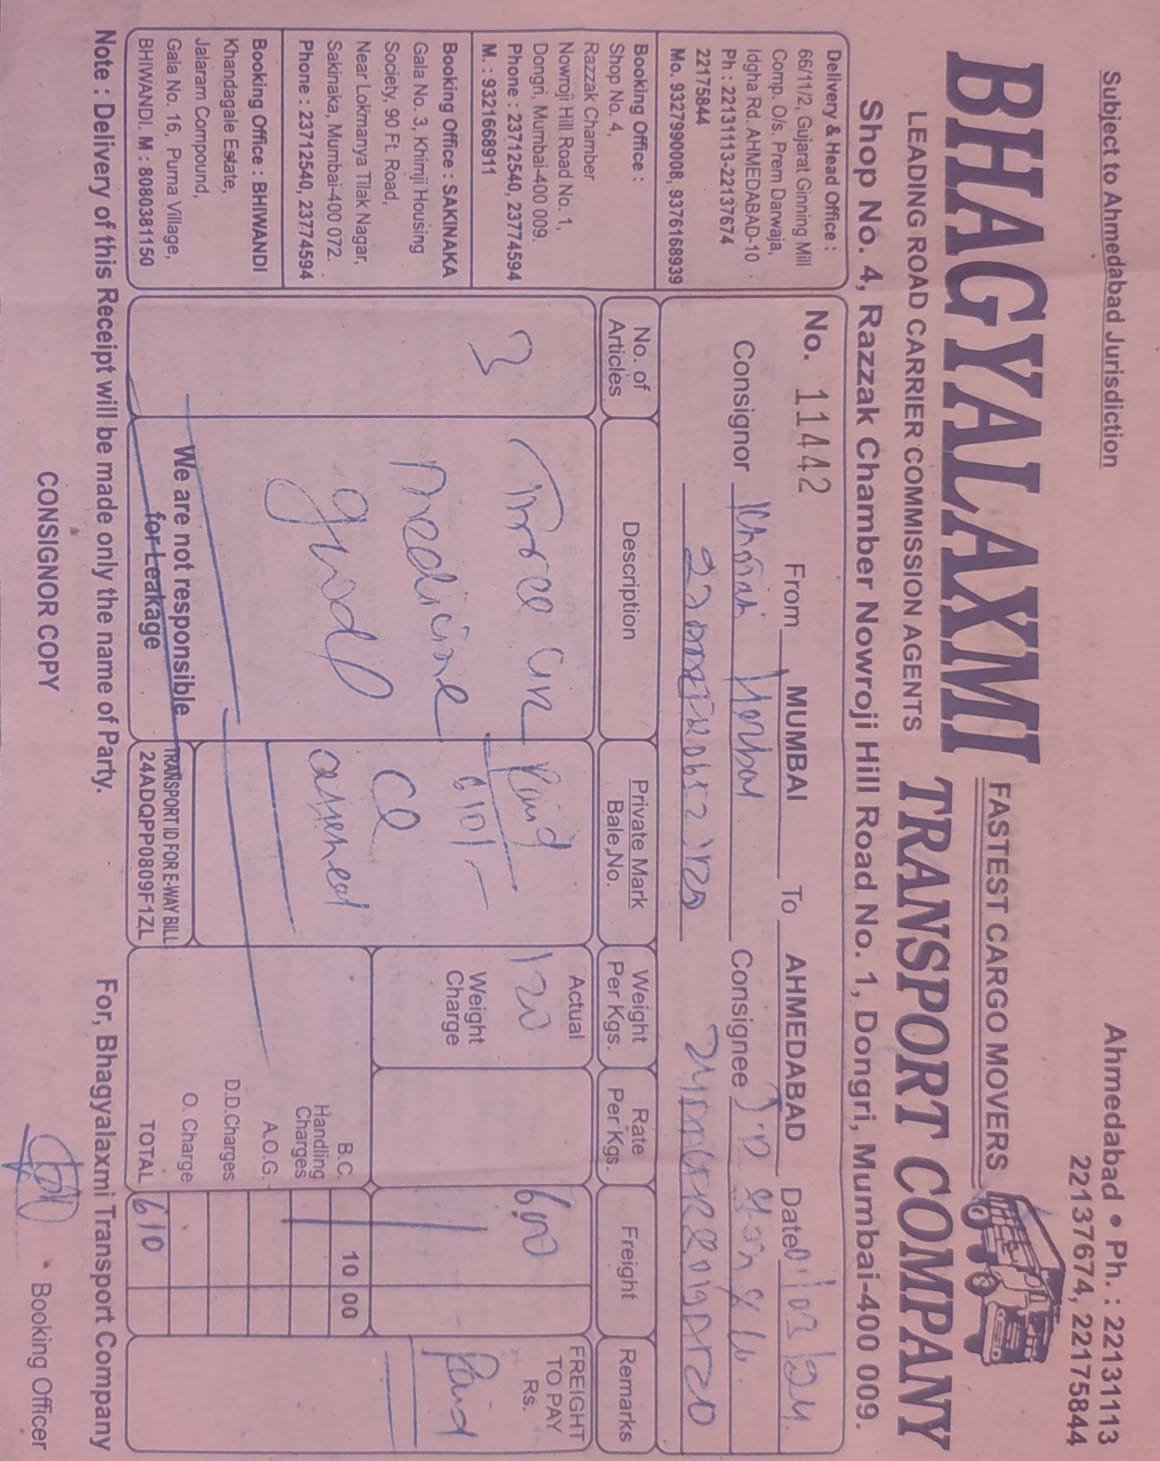 Subject to Ahmedabad Jurisdiction
Ahmedabad • Ph. : 22131113
22137674, 22175844
FASTEST CARGO MOVERS
BHAGYALAXMI TRANSPORT COMPANY
LEADING ROAD CARRIER COMMISSION AGENTS
Shop No. 4, Razzak Chamber Nowroji Hill Road No. 1, Dongri, Mumbai-400 009.
Delivery & Head Office :
66/11/2, Gujarat Ginning Mill
Comp. O/s. Prem Darwaja,
Idgha Rd. AHMEDABAD-10
Ph : 22131113-22137674
22175844
Mo. 9327990008, 9376168939
Booking Office :
Shop No. 4,
Razzak Chamber
Nowroji Hill Road No. 1,
Dongri, Mumbai-400 009.
Phone : 23712540, 23774594
M. : 9321668911
Booking Office : SAKINAKA
Gala No. 3, Khimji Housing
Society, 90 Ft. Road,
Near Lokmanya Tilak Nagar,
Sakinaka, Mumbai-400 072.
Phone : 23712540, 23774594
Booking Office : BHIWANDI
Khandagale Estate,
Jalaram Compound,
Gala No. 16, Purna Village,
BHIWANDI. M : 8080381150
No. 11442 From MUMBAI To AHMEDABAD Date
Consignor Consignee
No. of Articles
Description
Private Mark Bale,No.
Weight Per Kgs.
Rate Per Kgs.
Freight
Remarks
3
Three
medicine
good
Paid
610/-
Actual
120
Weight Charge
600
FREIGHT TO PAY Rs.
Paid
B.C. 10 00
Handling Charges
A.O.G.
D.D.Charges
O. Charge
TOTAL 610
We are not responsible
for Leakage
TRANSPORT ID FOR E-WAY BILL
24ADQPP0809F1ZL
Note : Delivery of this Receipt will be made only the name of Party.
For, Bhagyalaxmi Transport Company
CONSIGNOR COPY
Booking Officer